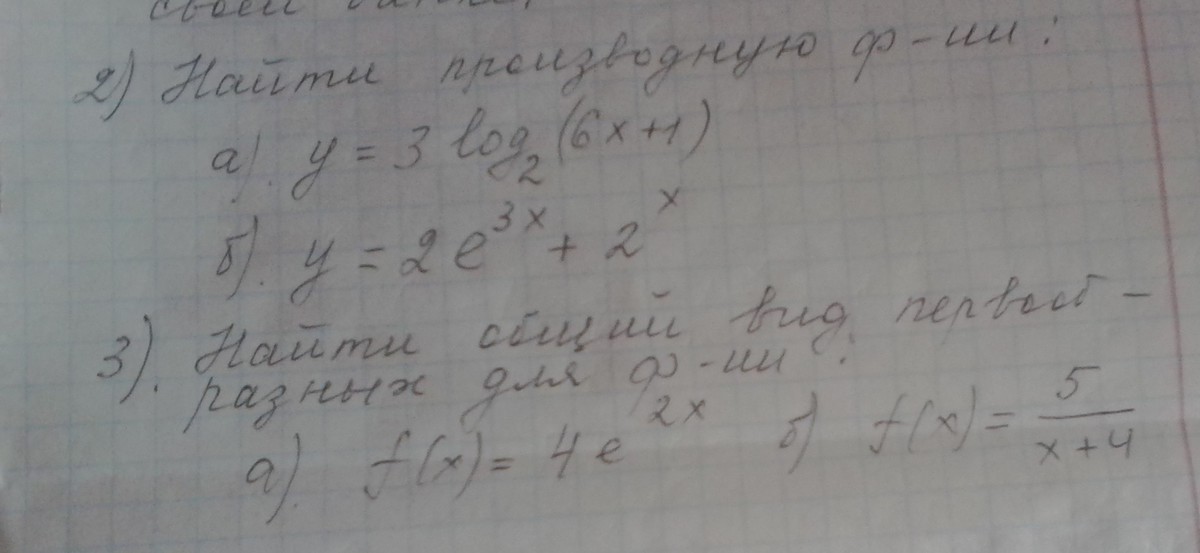 своей
2) Найти производную ф-ии:
а). y = 3 log₂(6x+1)
б). y = 2e³ˣ + 2ˣ
3). Найти общий вид первооб-
разных для ф-ии:
а). f(x) = 4e²ˣ б) f(x) = 5/(x+4)